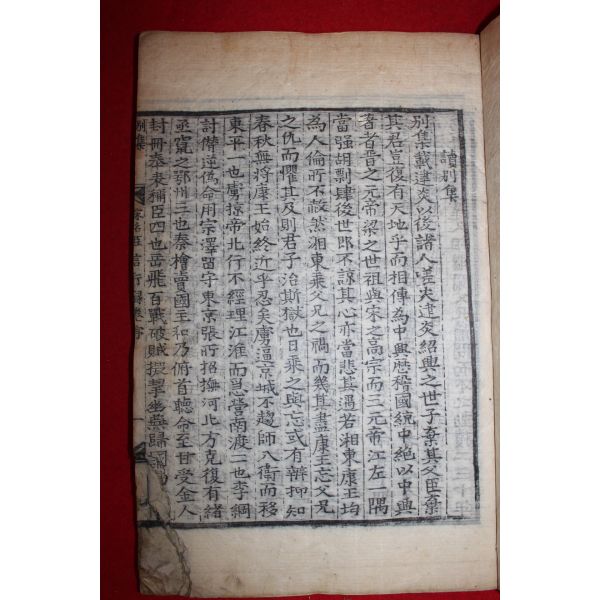 讀別集
別集載建炎以後諸人嗟炎建炎紹興之世子棄其父臣棄
其君豈復有天地乎而相傳為中興歷稽國統中絕以中興
著者晉之元帝梁之世祖與宋之高宗而三元帝江左一隅
當強胡剽肆後世郎不諒其心亦當悲其遇若湘東康王均
為人倫所不敢然湘東乘父兄之禍而幾其盡康王忘父兄
之仇而懼其及則君子治斯獄也日乘之與忘或有辨抑知
春秋無將康王始終近乎忍矣虜逼京城不趨師入衛而移
東平一也虜掠帝北行不經理江淮而急營南渡二也李綱
討僭逆偽命用宗澤留守東京張所招撫河北方克復有緒
亟竄之鄂州三也秦檜賣國主和乃俯首聽命至甘受金人
封冊奉表稱臣四也岳飛百戰破賊
別集
言行錄卷